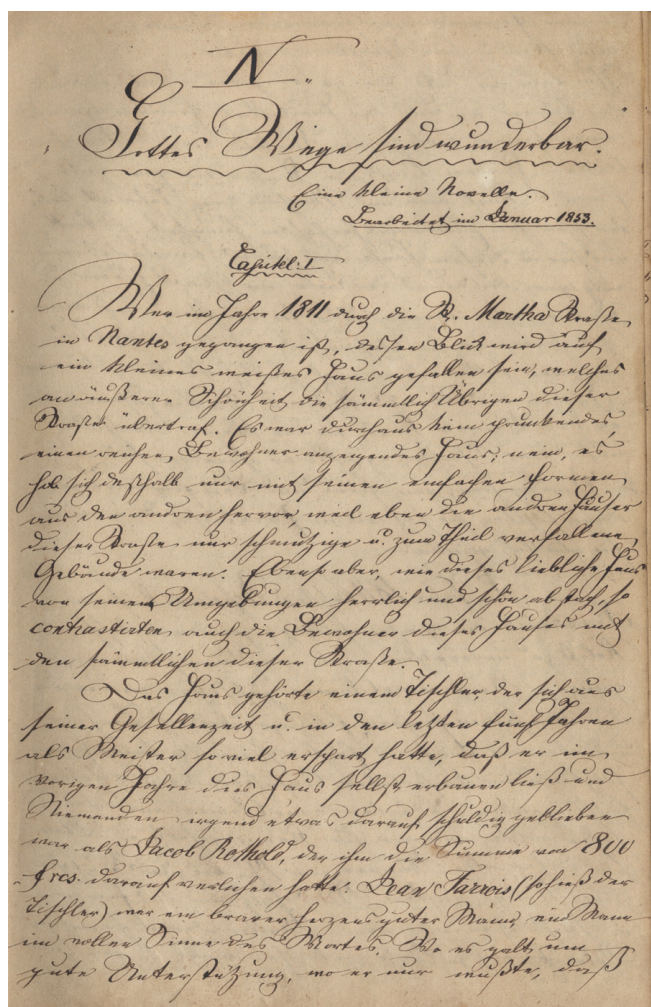 N.
Gottes Wege sind wunderbar.
Eine kleine Novelle.
Bearbeitet im Januar 1853.
Capitel: I
Wer im Jahre 1811 durch die St. Martha Straße
in Nantes gegangen ist, dessen Blick wird auf
ein kleines weißes Haus gefallen sein, welches
an äußerer Schönheit die sämmtlich Übrigen dieser
Straße übertraf. Es war durchaus kein prunkendes,
einen reichen Bewohner anzeigendes Haus; nein, es
hob sich deßhalb nur mit seinen einfachen Formen
aus den andren hervor, weil eben die andren Häuser
dieser Straße nur schmutzige u. zum Theil verfallene
Gebäude waren. Ebenso aber, wie dieses liebliche Haus
von seinen Umgebungen herrlich und schön abstach, so
contrastirten auch die Bewohner dieses Hauses mit
den sämmtlichen dieser Straße.
Das Haus gehörte einem Tischler, der sich aus
seiner Gesellenzeit u. in den letzten fünf Jahren
als Meister soviel erspart hatte, daß er im
vorigen Jahre dies Haus selbst erbauen ließ und
Niemanden irgend etwas darauf schuldig geblieben
war als Jacob Rothold, der ihm die Summe von 800
frcs. darauf verliehen hatte. Jean Farrois (so hieß der
Tischler) war ein braver herzensguter Mann, ein Mann
im vollen Sinne des Wortes. Wo es galt, um
gute Unterstützung, wo er nur wußte, daß